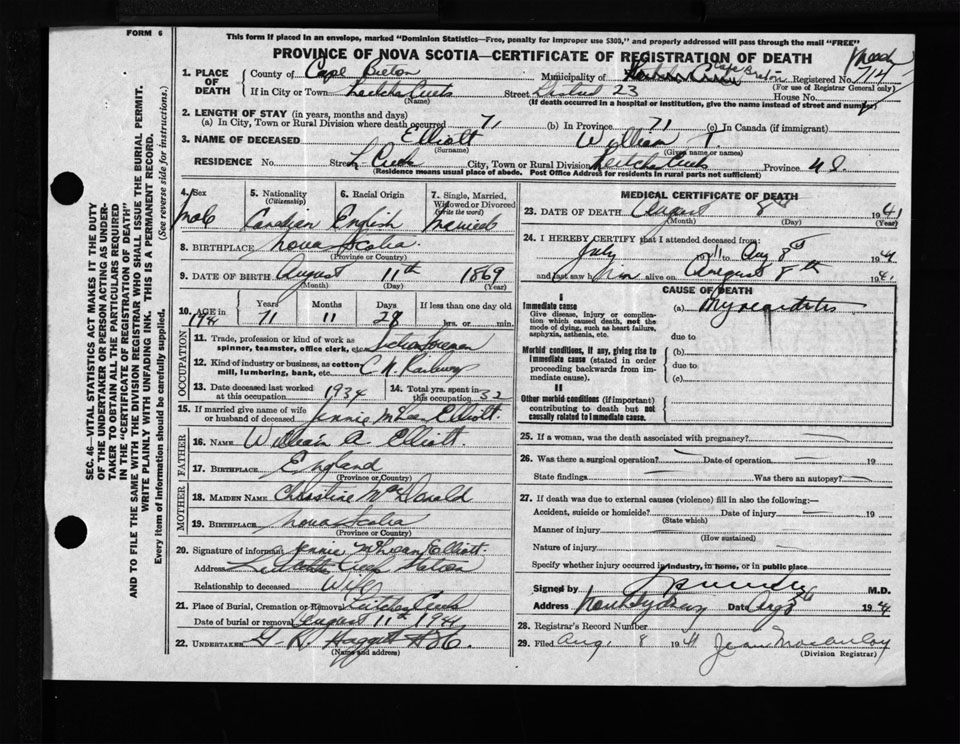 FORM 6
This form if placed in an envelope, marked "Dominion Statistics—Free, penalty for improper use $300," and properly addressed will pass through the mail "FREE"
PROVINCE OF NOVA SCOTIA—CERTIFICATE OF REGISTRATION OF DEATH
1. PLACE OF DEATH
County of Cape Breton Municipality of Cape Breton Registered No. 714
(For use of Registrar General only)
If in City or Town Street District 23 House No.
(Name) (If death occurred in a hospital or institution, give the name instead of street and number)
2. LENGTH OF STAY (in years, months and days)
(a) In City, Town or Rural Division where death occurred 71 (b) In Province 71 (c) In Canada (if immigrant)
3. NAME OF DECEASED Elliott William
(Surname) (Given name or names)
RESIDENCE No. Street L Creek City, Town or Rural Division Province N.S.
(Residence means usual place of abode. Post Office Address for residents in rural parts not sufficient)
4. Sex Male
5. Nationality (Citizenship) Canadian
6. Racial Origin English
7. Single, Married, Widowed or Divorced (write the word) Married
8. BIRTHPLACE Nova Scotia
(Province or Country)
9. DATE OF BIRTH August 11th 1869
(Month) (Day) (Year)
10. AGE in Years Months Days If less than one day old
1941 71 11 28 hrs. or min.
OCCUPATION
11. Trade, profession or kind of work as spinner, teamster, office clerk, etc.
12. Kind of industry or business, as cotton mill, lumbering, bank, etc. C.N. Railway
13. Date deceased last worked at this occupation 1934
14. Total yrs. spent in this occupation 32
15. If married give name of wife or husband of deceased Jennie Elliott
FATHER
16. NAME William A Elliott
17. BIRTHPLACE England
(Province or Country)
MOTHER
18. MAIDEN NAME Christine McDonald
19. BIRTHPLACE Nova Scotia
(Province or Country)
20. Signature of informant Jennie Elliott
Address Station
Relationship to deceased Wife
21. Place of Burial, Cremation or Removal Leitches Creek
Date of burial or removal August 11th 1941
22. UNDERTAKER
(Name and address)
MEDICAL CERTIFICATE OF DEATH
23. DATE OF DEATH August 8th 1941
(Month) (Day) (Year)
24. I HEREBY CERTIFY that I attended deceased from:
July 1941 to Aug 8th 1941
and last saw him alive on August 8th 1941
CAUSE OF DEATH
I
Immediate cause
Give disease, injury or complication which caused death, not the mode of dying, such as heart failure, asphyxia, asthenia, etc.
(a) Myocarditis
due to
Morbid conditions, if any, giving rise to immediate cause (stated in order proceeding backwards from immediate cause).
(b)
due to
(c)
II
Other morbid conditions (if important) contributing to death but not causally related to immediate cause.
25. If a woman, was the death associated with pregnancy?
26. Was there a surgical operation? Date of operation 19
State findings Was there an autopsy?
27. If death was due to external causes (violence) fill in also the following:—
Accident, suicide or homicide? Date of injury 19
(State which)
Manner of injury
(How sustained)
Nature of injury
Specify whether injury occurred in industry, in home, or in public place
Signed by M.D.
Address North Sydney Date Aug 8th 1941
28. Registrar's Record Number
29. Filed Aug. 8 1941 Jean
(Division Registrar)
SEC. 46—VITAL STATISTICS ACT MAKES IT THE DUTY
OF THE UNDERTAKER OR PERSON ACTING AS UNDER-
TAKER TO OBTAIN ALL THE PARTICULARS REQUIRED
IN THE "CERTIFICATE OF REGISTRATION OF DEATH"
AND TO FILE THE SAME WITH THE DIVISION REGISTRAR WHO SHALL ISSUE THE BURIAL PERMIT.
WRITE PLAINLY WITH UNFADING INK. THIS IS A PERMANENT RECORD.
Every item of information should be carefully supplied. (See reverse side for instructions.)